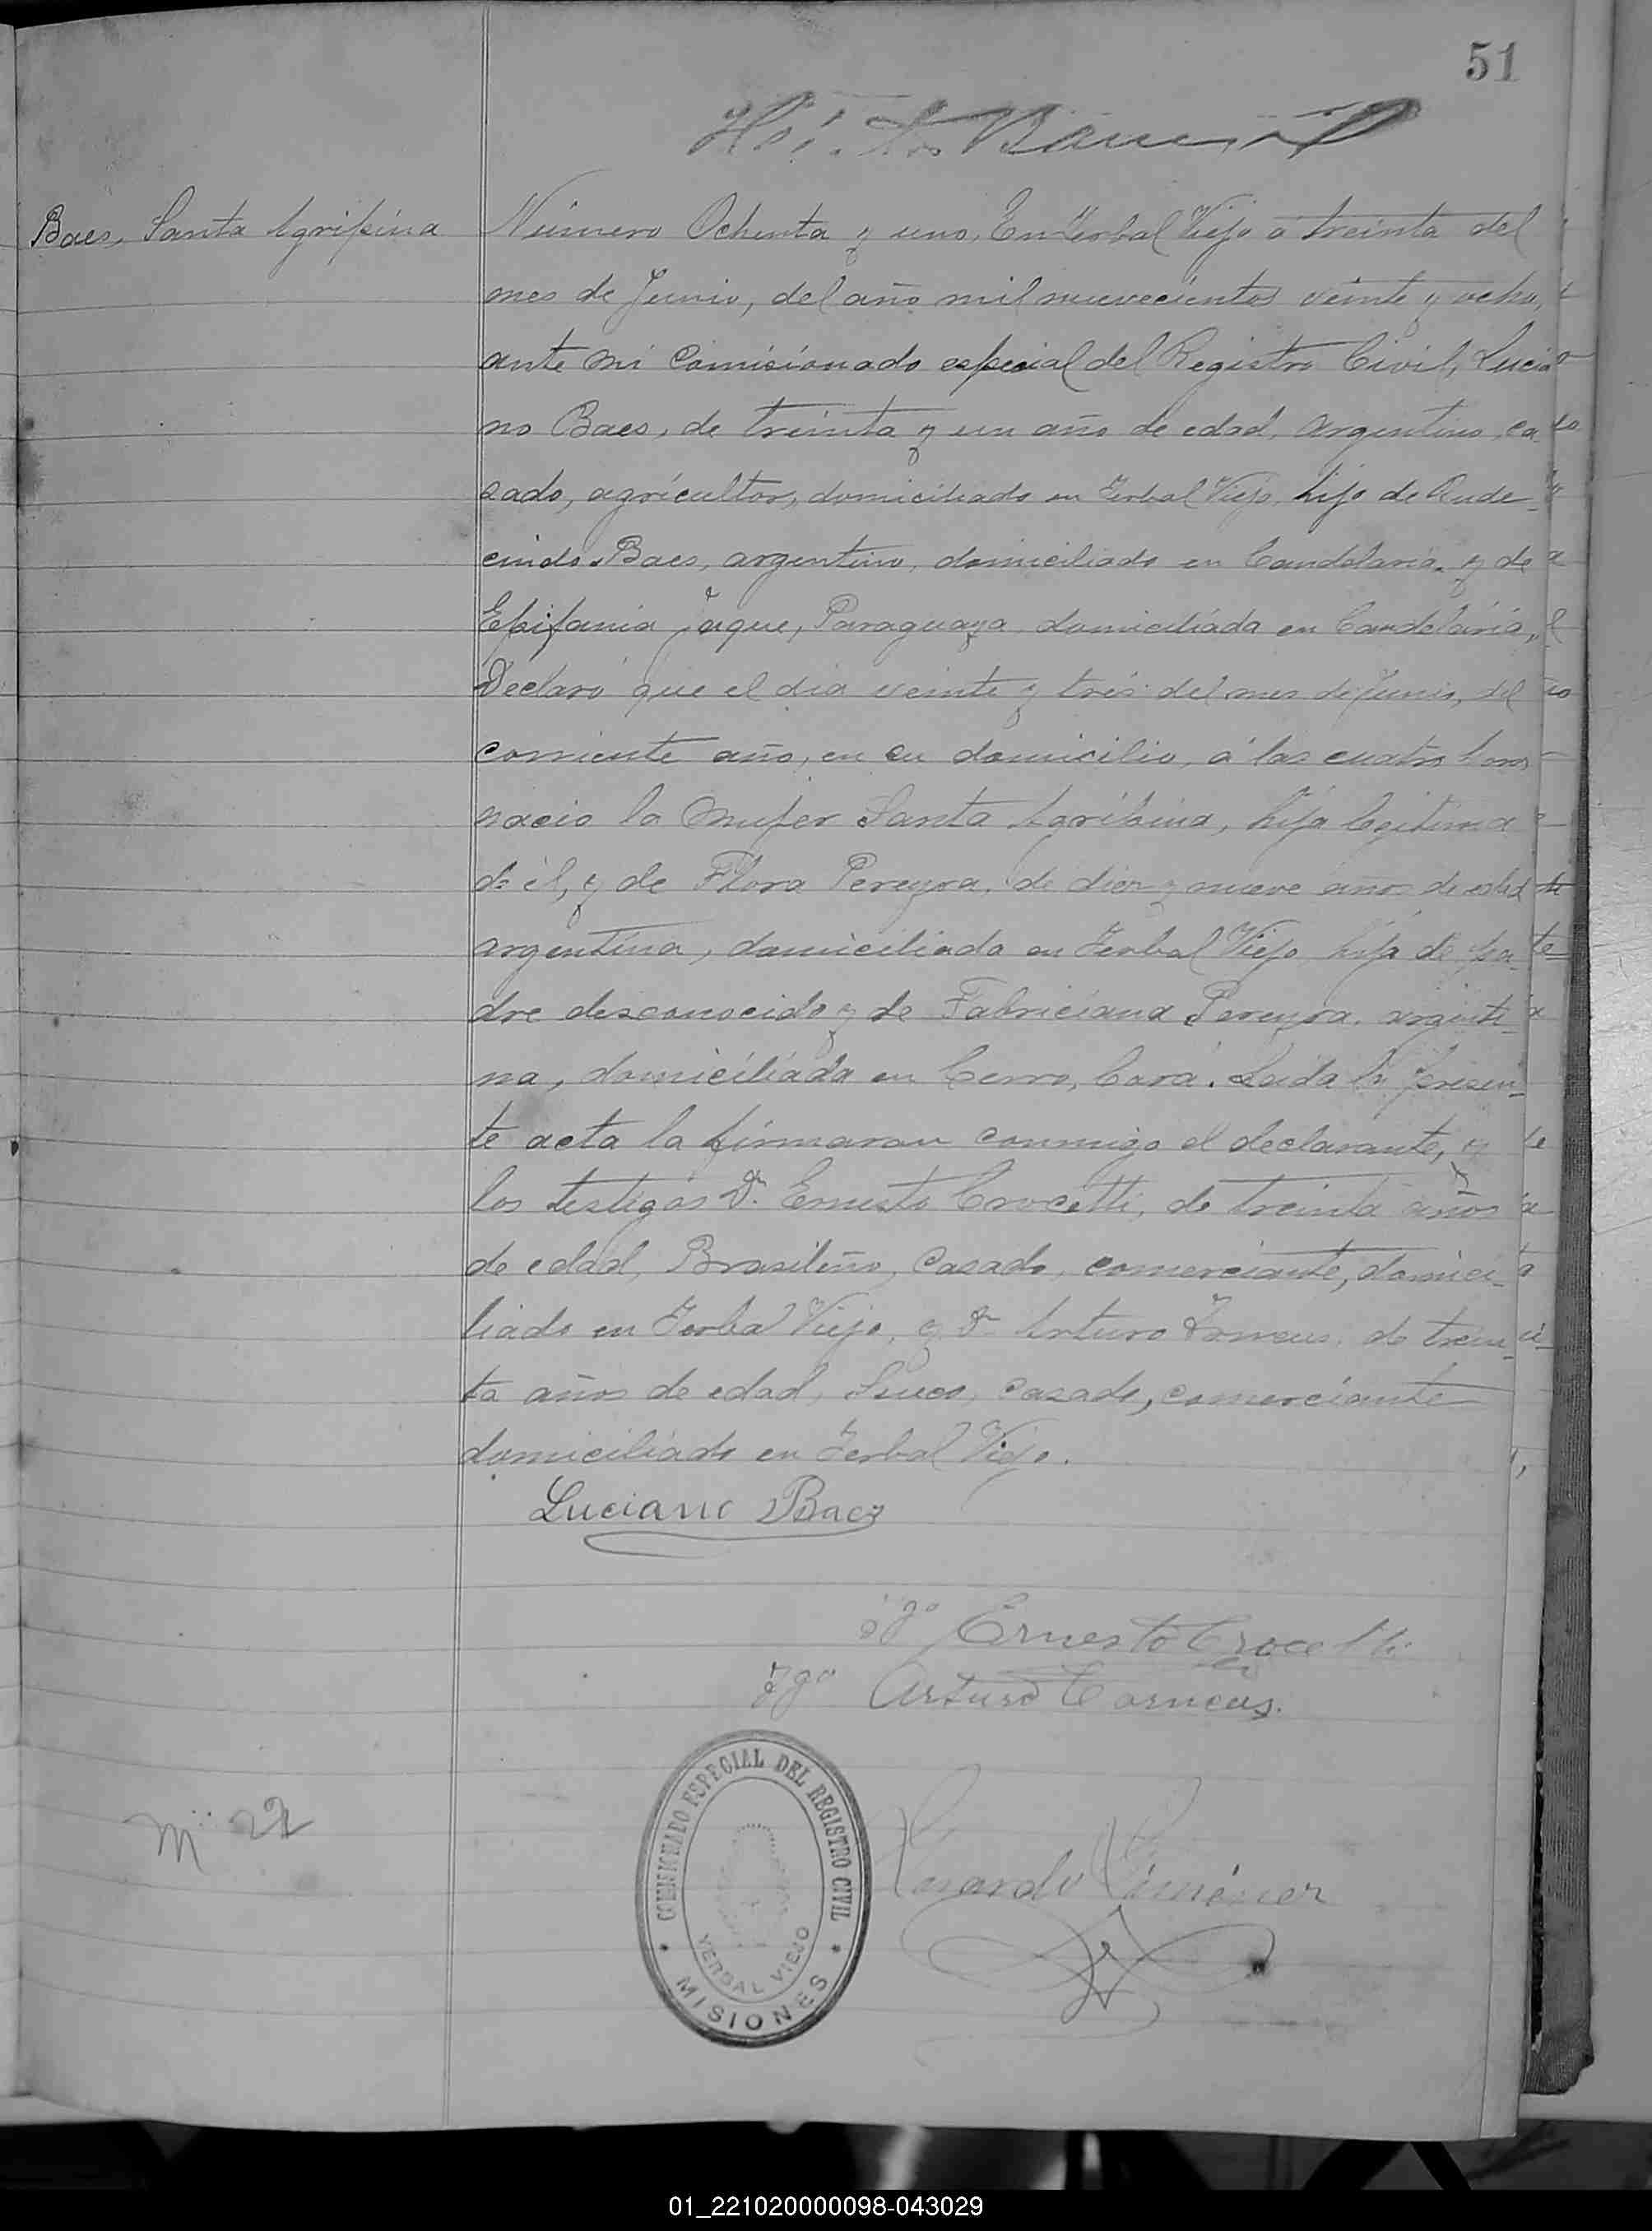 51
Baes, Santa Agripina
Número Ochenta y uno, En Yerbal Viejo a treinta del
mes de Junio, del año mil nuevecientos veinte y ocho,
ante mi Comisionado especial del Registro Civil, Lucia
no Baes, de treinta y un año de edad, argentino, ca
sado, agricultor, domiciliado en Yerbal Viejo, hijo de Rude-
cindo Baes, argentino, domiciliado en Candelaria, y de
Epifania Jaque, Paraguaya domiciliada en Candelária,
Declaró que el dia veinte y trés del mes de Junio, del
corriente año, en su domicilio, á las cuatro horas
nacio la Mujer Santa Agripina, hija legitima
de él, y de Flora Pereyra, de diez y nueve años de edad
argentina, domiciliada en Yerbal Viejo hija de pa-
dre desconocido y de Fabriciana Pereyra, argenti
na, domiciliada en Cerro, Corá. Leida la presen-
te acta la firmaran conmigo el declarante, y
los testigos Dn. Ernesto Crocetti, de treinta años
de edad, Brasileño, Casado, comerciante, domici-
liado en Yerbal Viejo, y Dn Arturo Torneus, de trein-
ta años de edad, Sueco, casado, comerciante
domiciliado en Yerbal Viejo.
Luciano Baez
Ernesto Crocetti
Tgo Arturo Torneus.
COMISIONADO ESPECIAL DEL REGISTRO CIVIL
YERBAL VIEJO
MISIONES
M 22
01_221020000098-043029